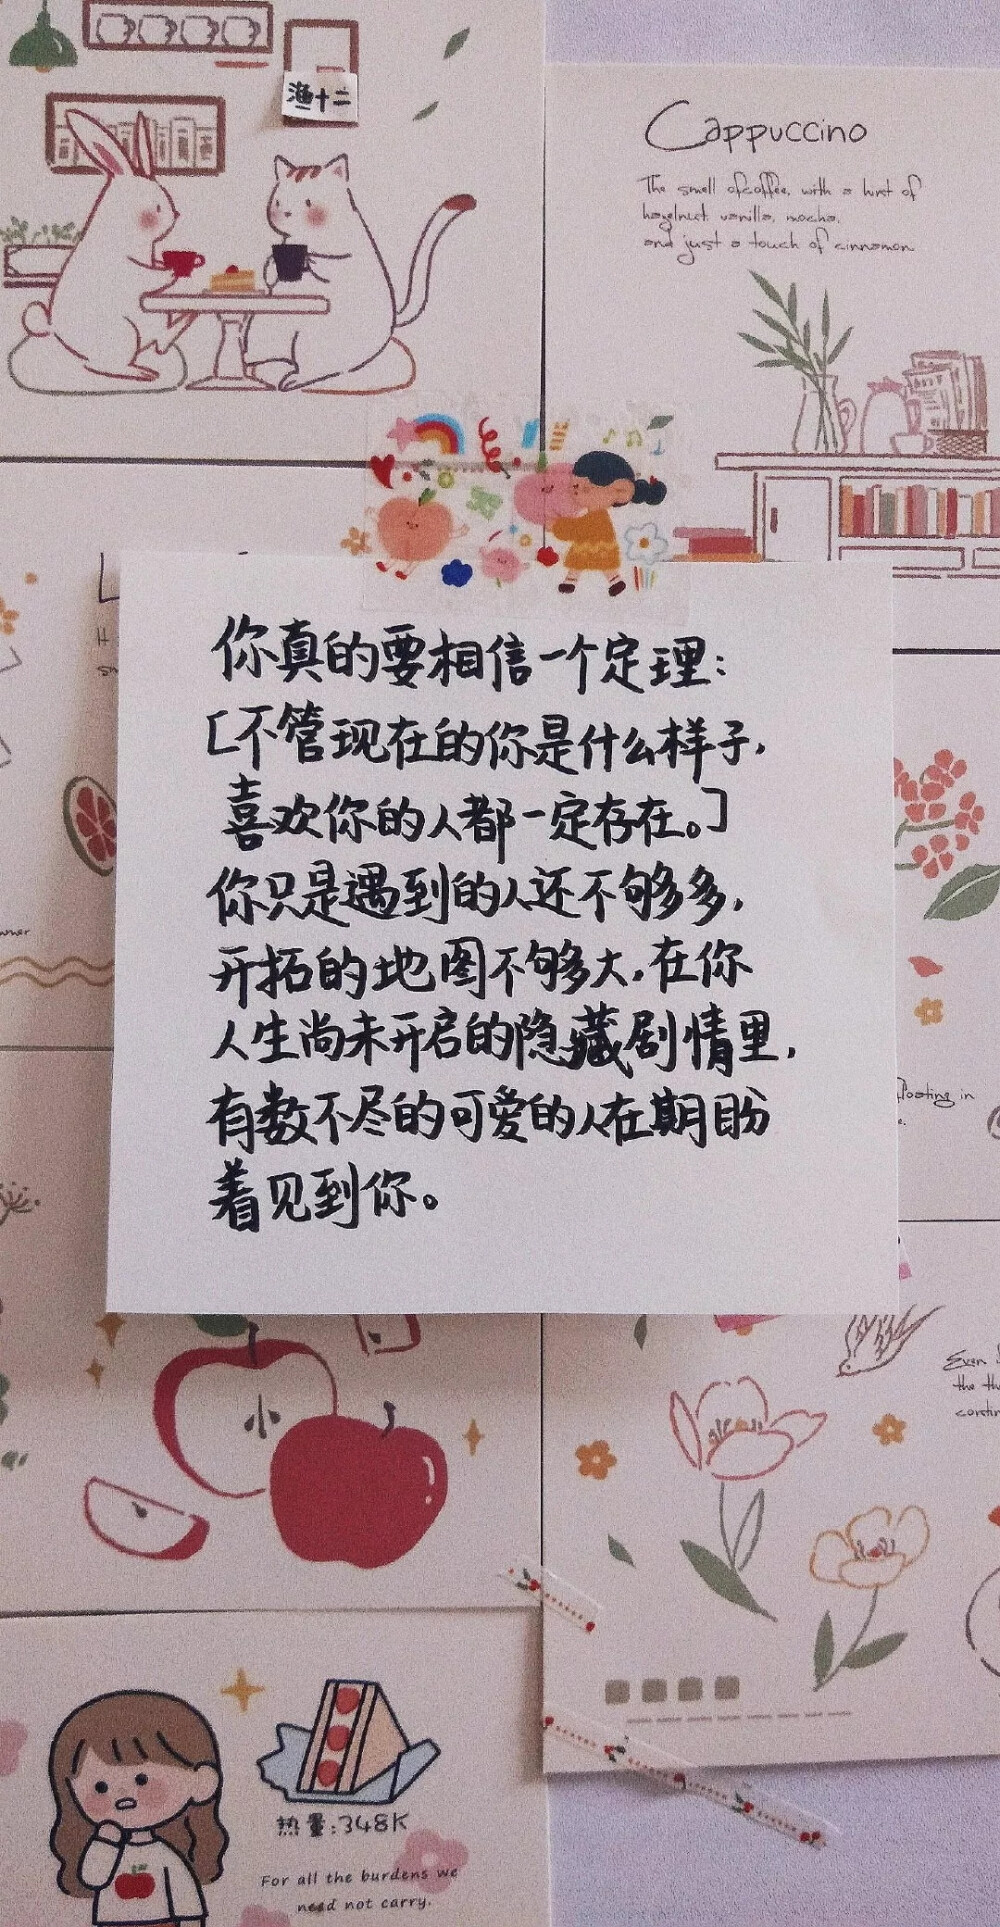 渔十二
Cappuccino
The smell of coffee, with a hint of
hazelnut, vanilla, mocha,
and just a touch of cinnamon
你真的要相信一个定理：
[不管现在的你是什么样子，
喜欢你的人都一定存在。]
你只是遇到的人还不够多，
开拓的地图不够大，在你
人生尚未开启的隐藏剧情里，
有数不尽的可爱的人在期盼
着见到你。
floating in
Even
the
热量:348K
For all the burdens we
need not carry.